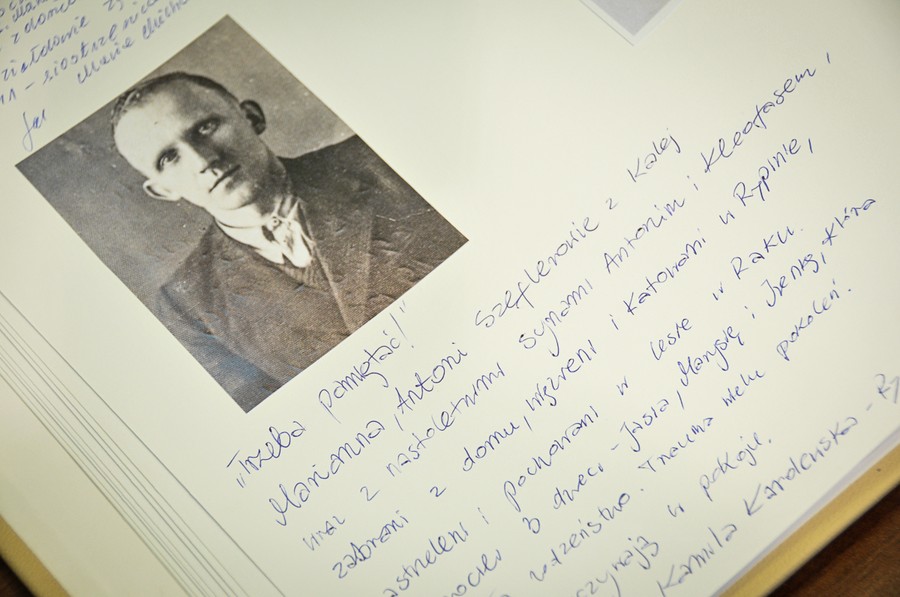 zdome
Maria
"Trzeba pamiętać!"
Marianna, Antoni Szeflerowie z Kalej
wraz z nastoletnimi synami Antonim i Kleofasem,
zabrani z domu, więzieni i katowani w Rypinie,
astrzeleni i pochowani w lesie w Raku.
3 dzieci - Jasia, Marysię i Irenkę, która
rodzeństwo. Trauma wielu pokoleń.
czywają w pokoju.
Kamila Karolewska - Ry